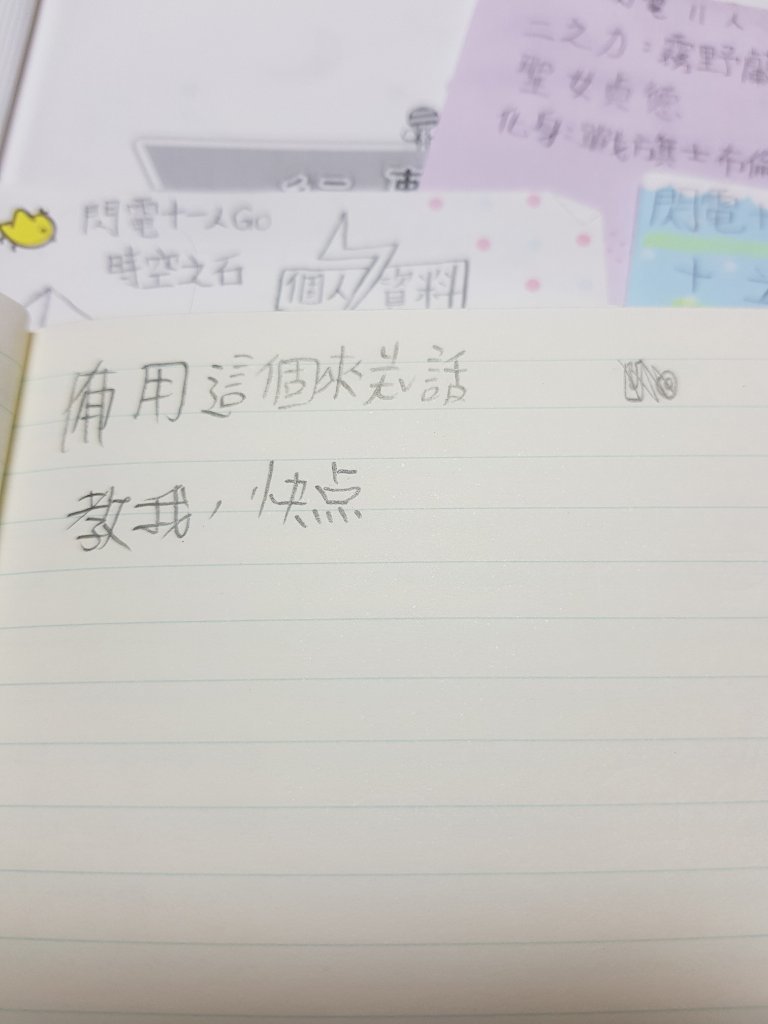 二之力:霧野蘭
聖女貞德
化身:戰旗士布倫
閃電十一人Go
時空之石
個人資料
閃電十
有用這個來說話
No
教我,快点